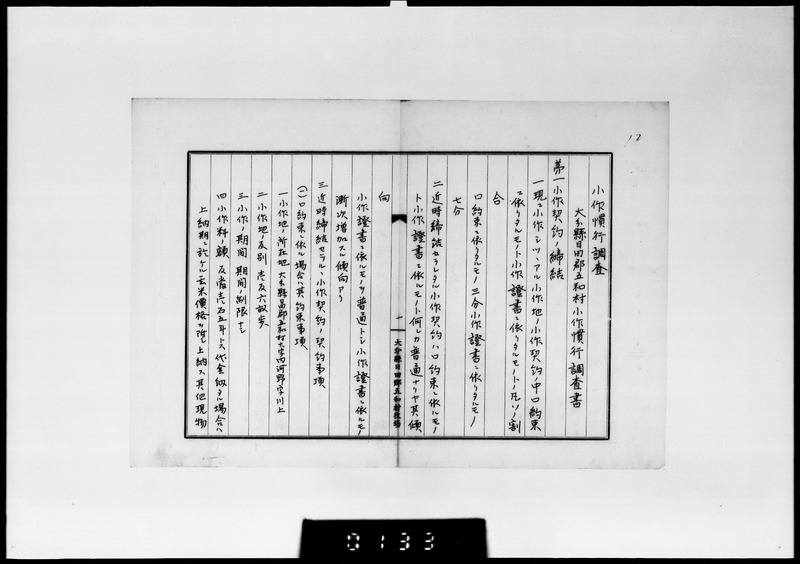 12
小作慣行調査
大分縣日田郡五和村小作慣行調査書
第一小作契約ノ締結
一現ニ小作シツヽアル小作地ノ小作契約中口約束
ニ依リタルモノト小作證書ニ依リタルモノトノ凡ソノ割
合
口約束ニ依リタルモノ三分小作證書ニ依リタルモノ
七分
二近時締結セラレタル小作契約ハ口約束ニ依ルモノ
ト小作證書ニ依ルモノト何レカ普通ナリヤ其傾
向
一
大分縣日田郡五和村役場
小作證書ニ依ルモノヲ普通トシ小作證書ニ依ルモノ
漸次増加スル傾向アリ
三近時締結セラルヽ小作契約ノ契約事項
(一)口約束ニ依ル場合ハ其約束事項
一小作地ノ所在地 大分縣日田郡五和村大字内河野字川上
二小作地ノ反別 壱反六畝歩
三小作ノ期間 期間ノ制限ナシ
四小作料ノ額 反當壱石五斗トス代金納タル場合ハ
上納期ニ於ケル玄米價格ヲ以テ上納ス其他現物
0133